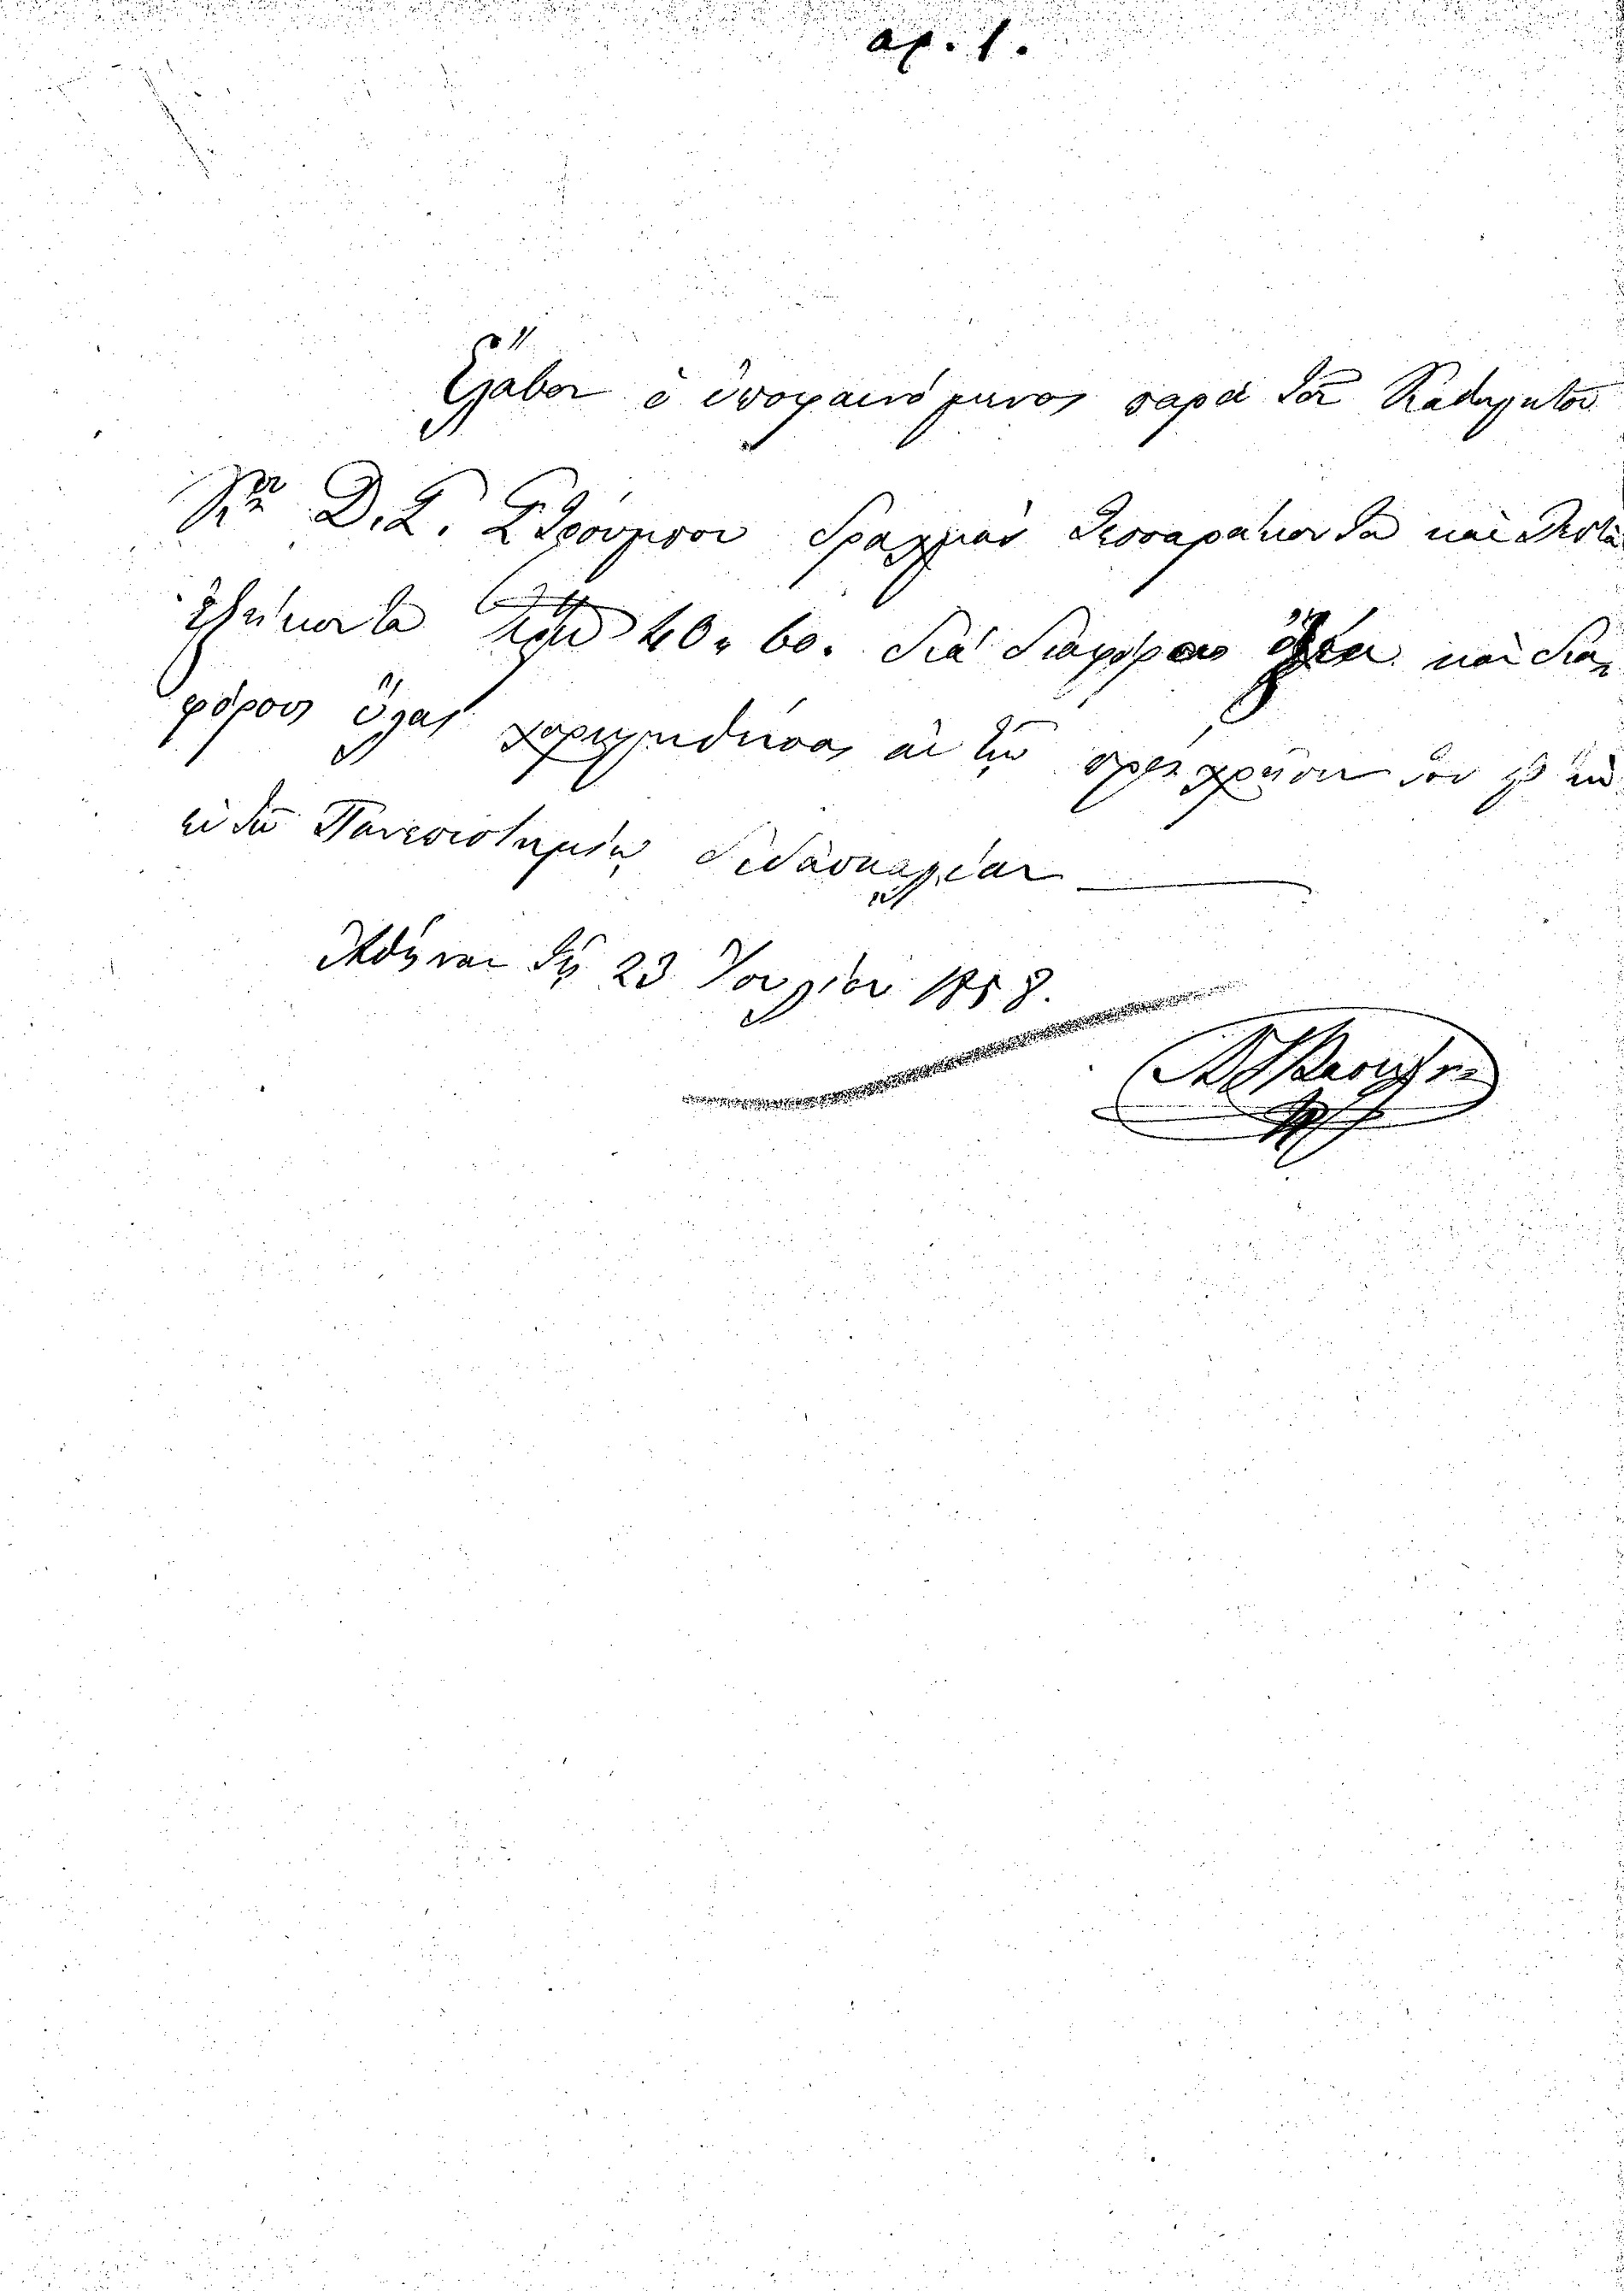 αρ. 1.
Ἔλαβον ὁ ὑποφαινόμενος παρὰ τοῦ Καθηγητοῦ
Κου Δ. Σ. Στρούμπου δραχμὰς τεσσαράκοντα καὶ λεπτὰ
ἑξήκοντα 40, 60. διὰ διαφόρους καὶ δια
φόρους ὕλας χορηγηθείσας εἰς τὴν πρὸς χρῆσιν του
ἐν τῷ Πανεπιστημίῳ διδασκαλίαν
Ἀθῆναι τῇ 23 Ἰουλίου 1858.